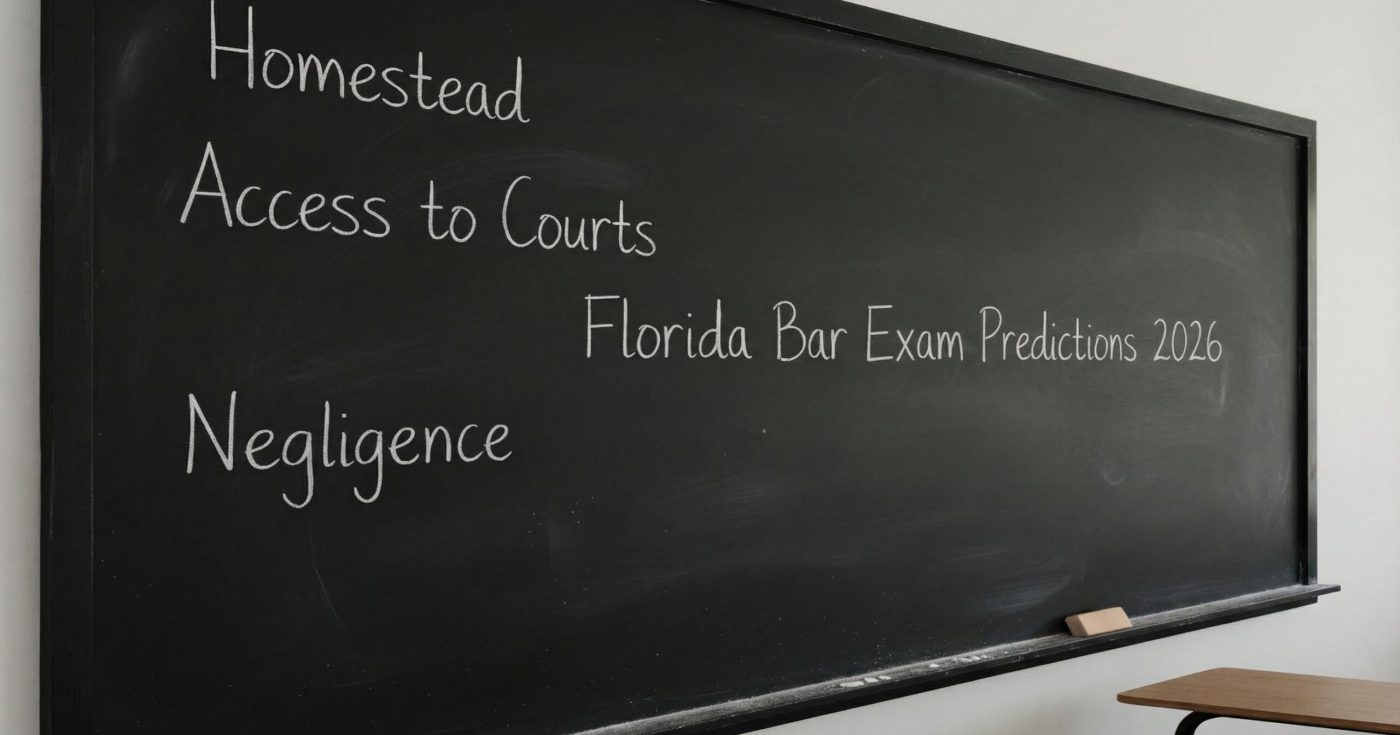 Homestead
Access to Courts
Florida Bar Exam Predictions 2026
Negligence